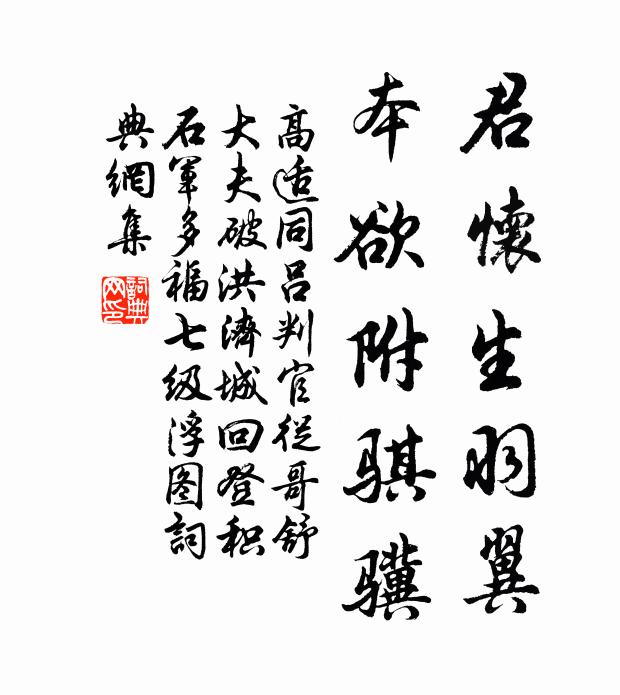 君懷生羽翼
本欲附骐骥
高适同吕判官從哥舒
大夫破洪濟城回登积
石軍多福七级浮图詞
典網集
詞典
网印